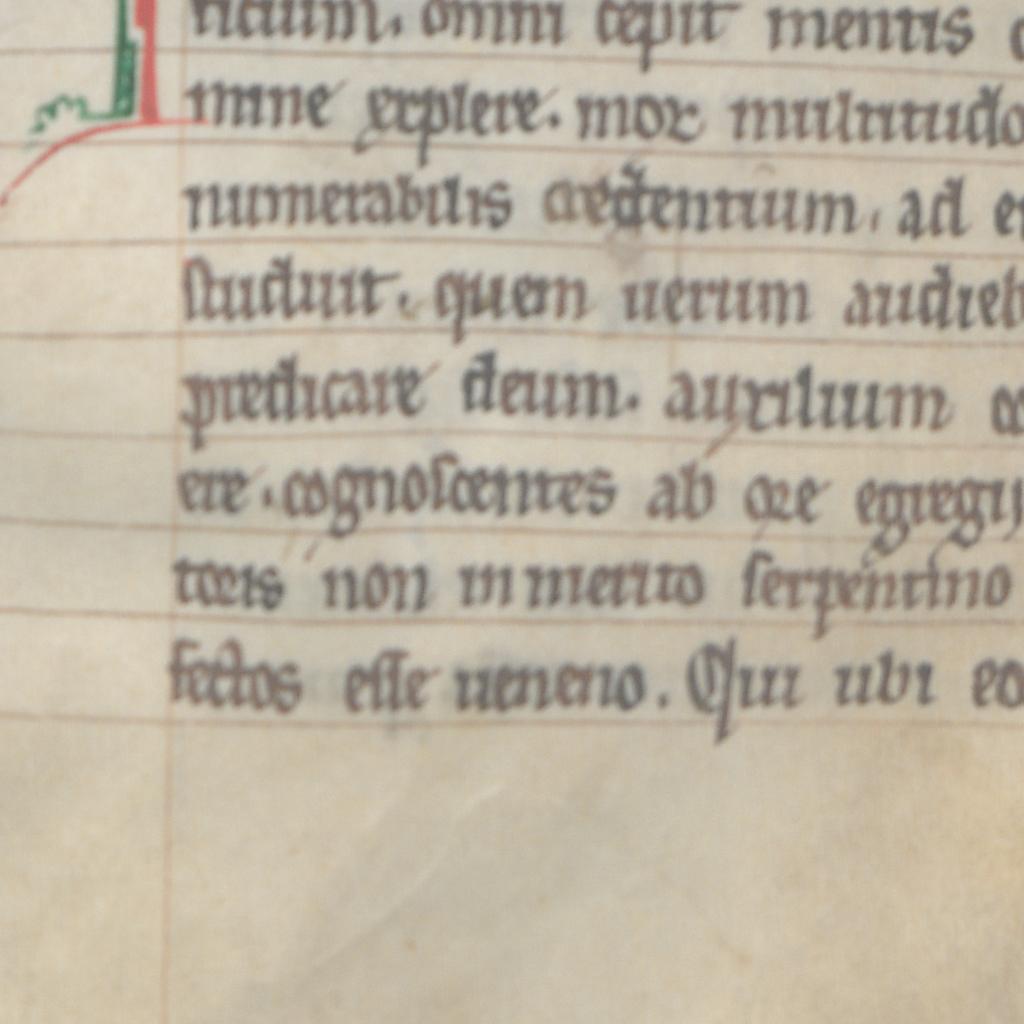 omni cepit mentis
mine explere. mox multitudo
numerabilis credentium, ad
studuit. quem uerum audieb
predicare deum. auxilium
ere. cognoscentes ab ore egregij
toris non inmerito serpentino
fectos esse ueneno. Qui ubi eo